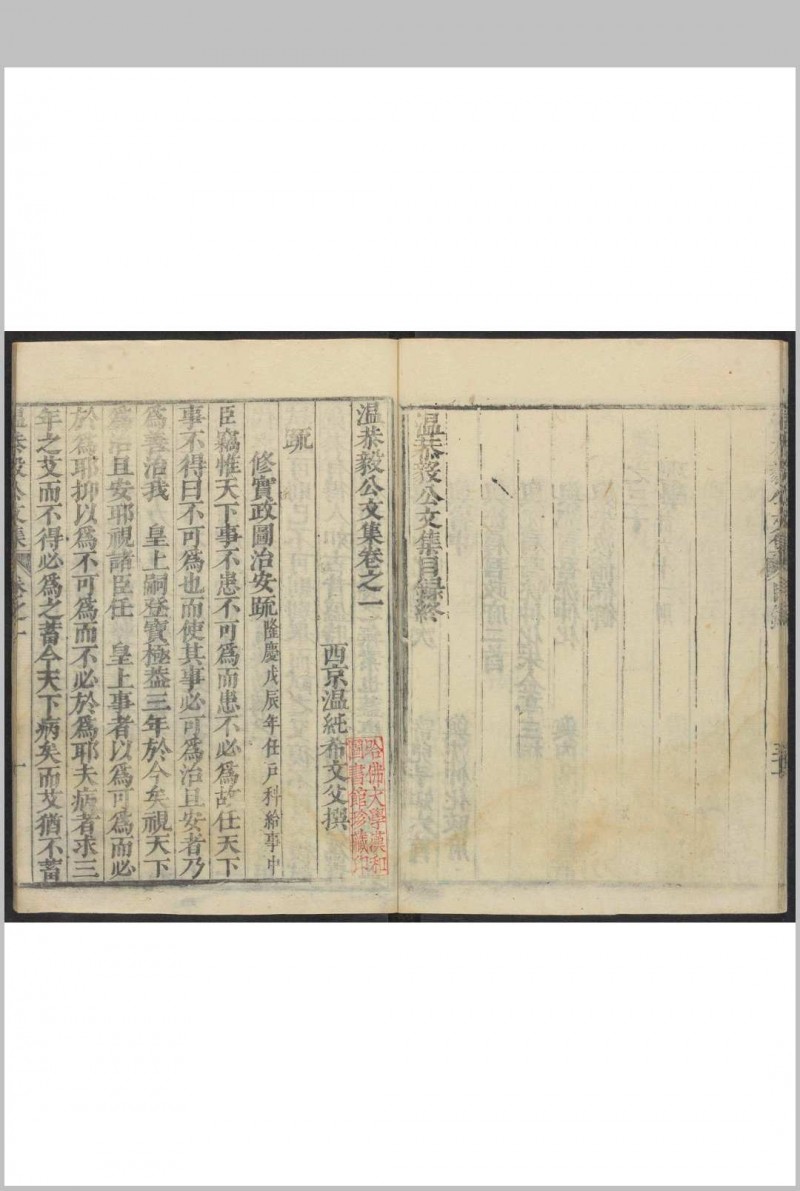 温恭毅公文集目録終
温恭毅公文集卷之一
西京温純希文父撰
哈佛大學漢和
圖書館珍藏印
疏
修實政圖治安疏隆慶戊辰年任戸科給事中
臣竊惟天下事不患不可爲而患不必爲故任天下
事不得曰不可爲也而使其事必可爲治且安者乃
爲善治我　皇上嗣登寶極葢三年於今矣視天下
爲治且安耶視諸臣任　皇上事者以爲可爲而必
於爲耶抑以爲不可爲而不必於爲耶夫病者求三
年之艾而不得必爲之蓄今天下病矣而艾猶不蓄
温恭毅公文集　卷之一　一